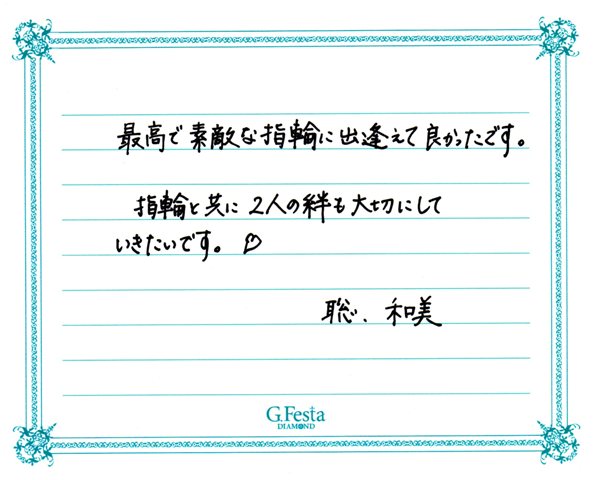 最高で素敵な指輪に出逢えて良かったです。
指輪と共に2人の絆も大切にして
いきたいです。♡
聡、和美
G.Festa
DIAMOND